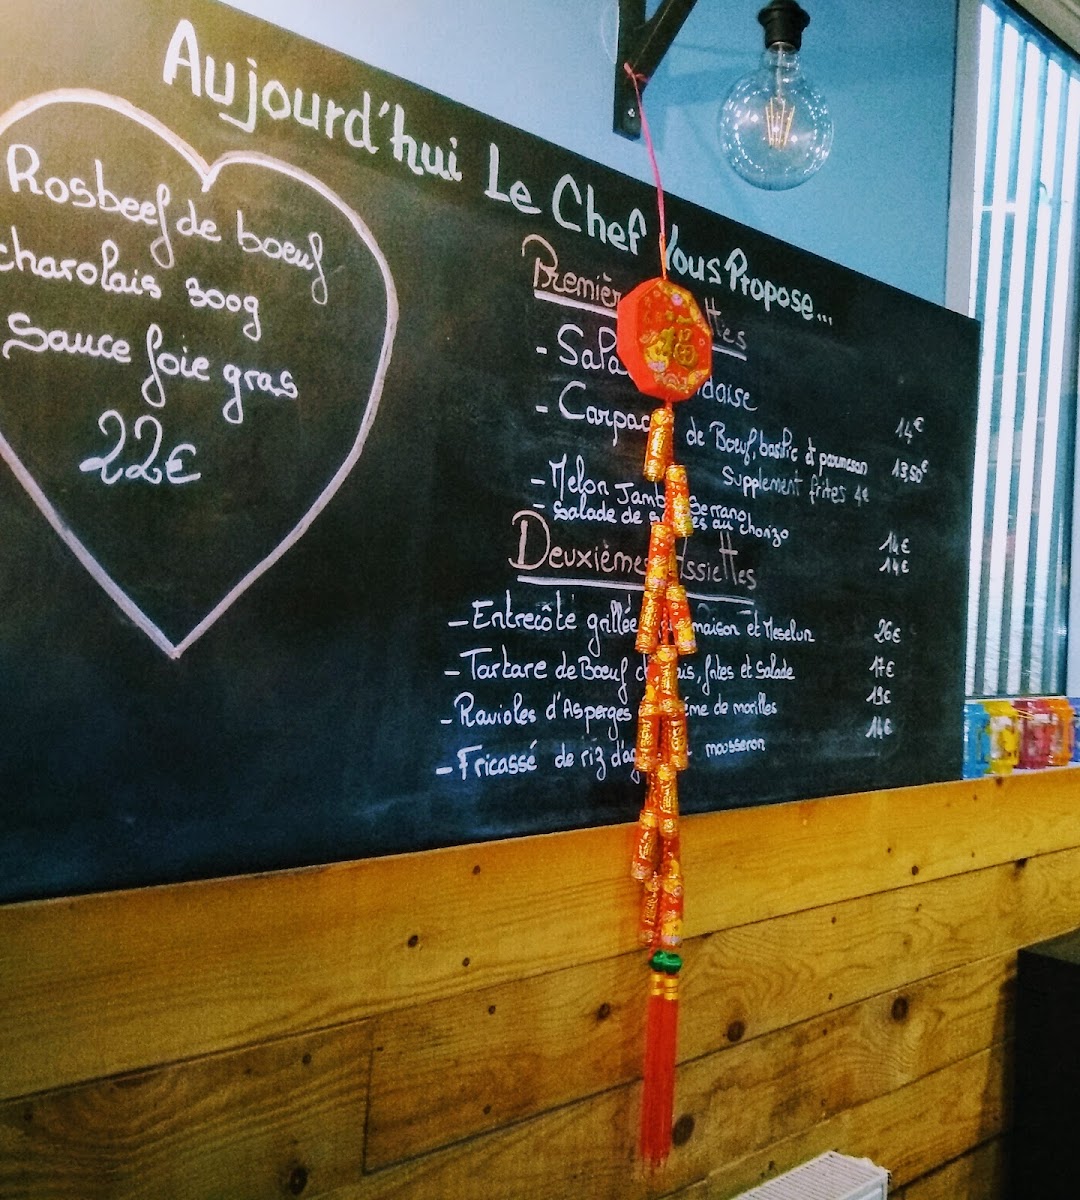 Aujourd'hui Le Chef Vous Propose...
Rosbeef de boeuf
charolais 300g
Sauce foie gras
22€
Premièr ttes
- Sala daise 14€
- Carpac de Boeuf, basilic et parmesan 13,50€
Supplement frites 4€
- Melon Jamb Serrano 14€
- Salade de s es au chorizo 14€
Deuxièmes Assiettes
- Entrecôte grillée maison et Meselun 26€
- Tartare de Boeuf ch ais, frites et Salade 17€
- Ravioles d'Asperges ème de morilles 19€
- Fricassé de riz d'ag mousseron 14€
福